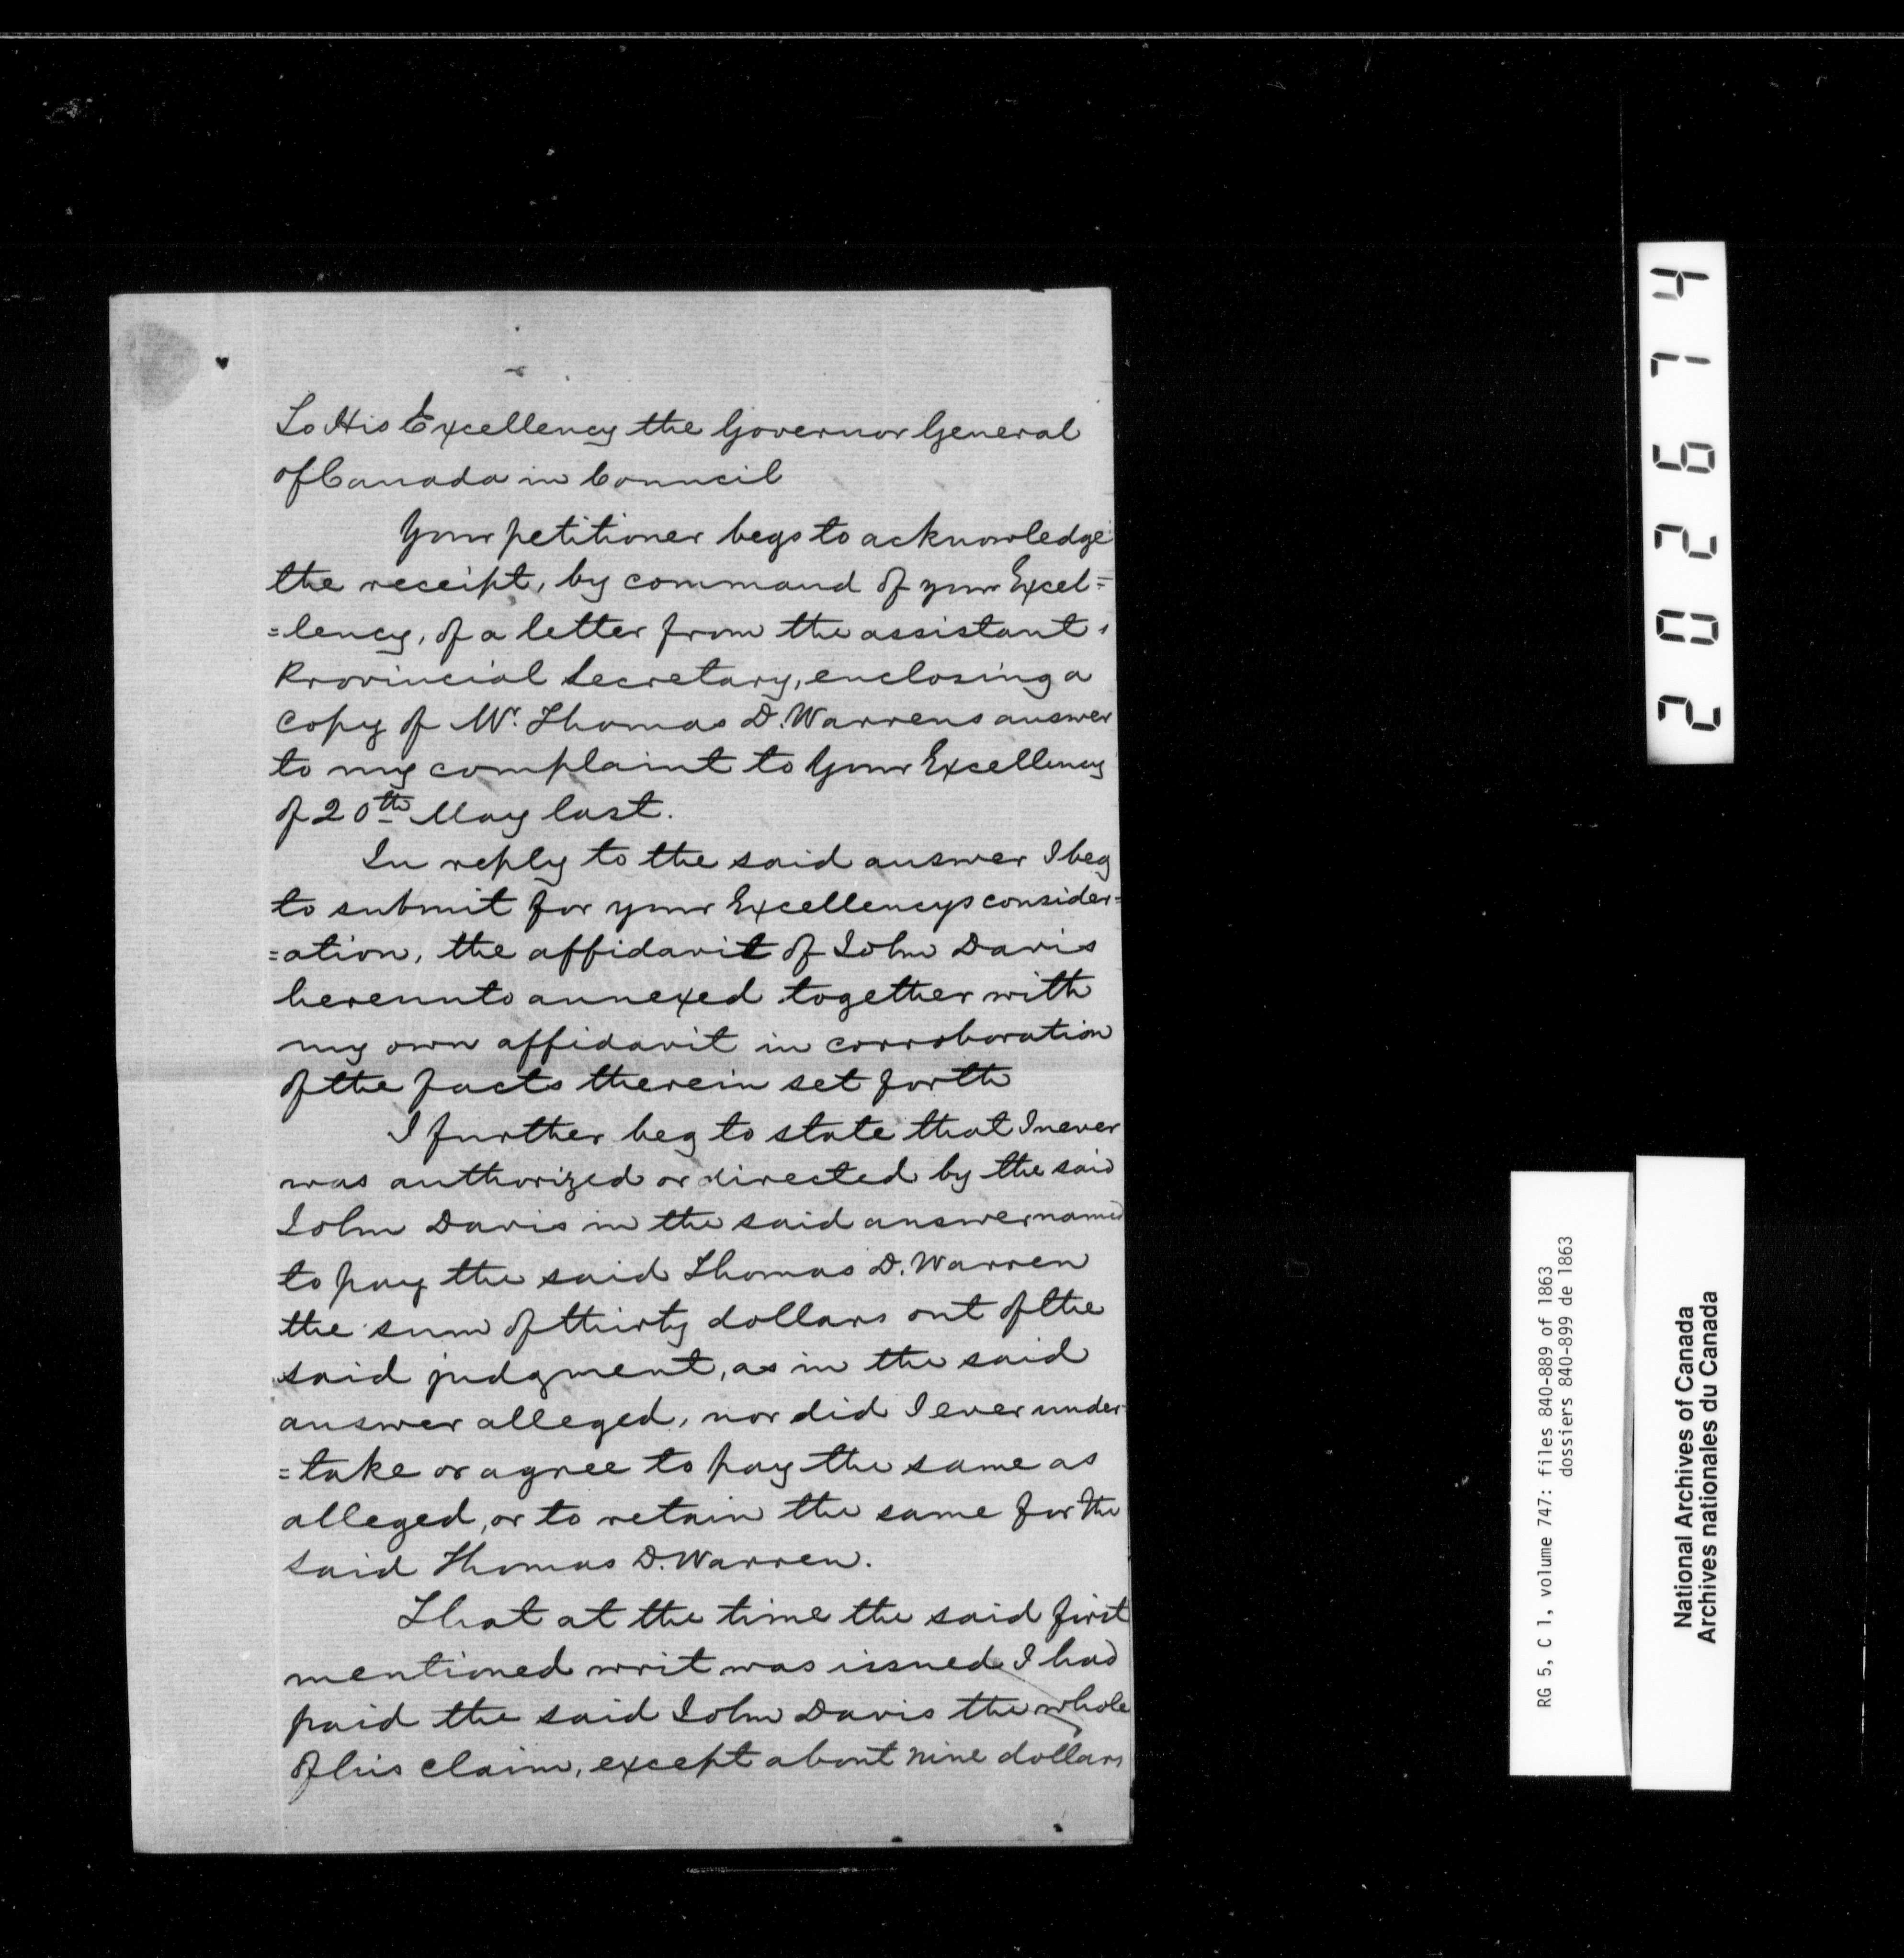 To His Excellency the Governor General
of Canada in Council
Your petitioner begs to acknowledge
the receipt, by command of your Excel=
=lency, of a letter from the assistant
Provincial Secretary, enclosing a
copy of Mr. Thomas D. Warrens answer
to my complaint to Your Excellency
of 20th May last.
In reply to the said answer I beg
to submit for your Excellencys consider=
=ation, the affidavit of John Davis
hereunto annexed together with
my own affidavit in corroboration
of the facts therein set forth
I further beg to state that I never
was authorized or directed by the said
John Davis in the said answer named
to pay the said Thomas D. Warren
the sum of thirty dollars out of the
said judgment, as in the said
answer alleged, nor did I ever under=
=take or agree to pay the same as
alleged, or to retain the same for the
said Thomas D. Warren.
That at the time the said first
mentioned writ was issued I had
paid the said John Davis the whole
of his claim, except about nine dollars
202674
RG 5, C 1, volume 747: files 840-889 of 1863
dossiers 840-899 de 1863
National Archives of Canada
Archives nationales du Canada